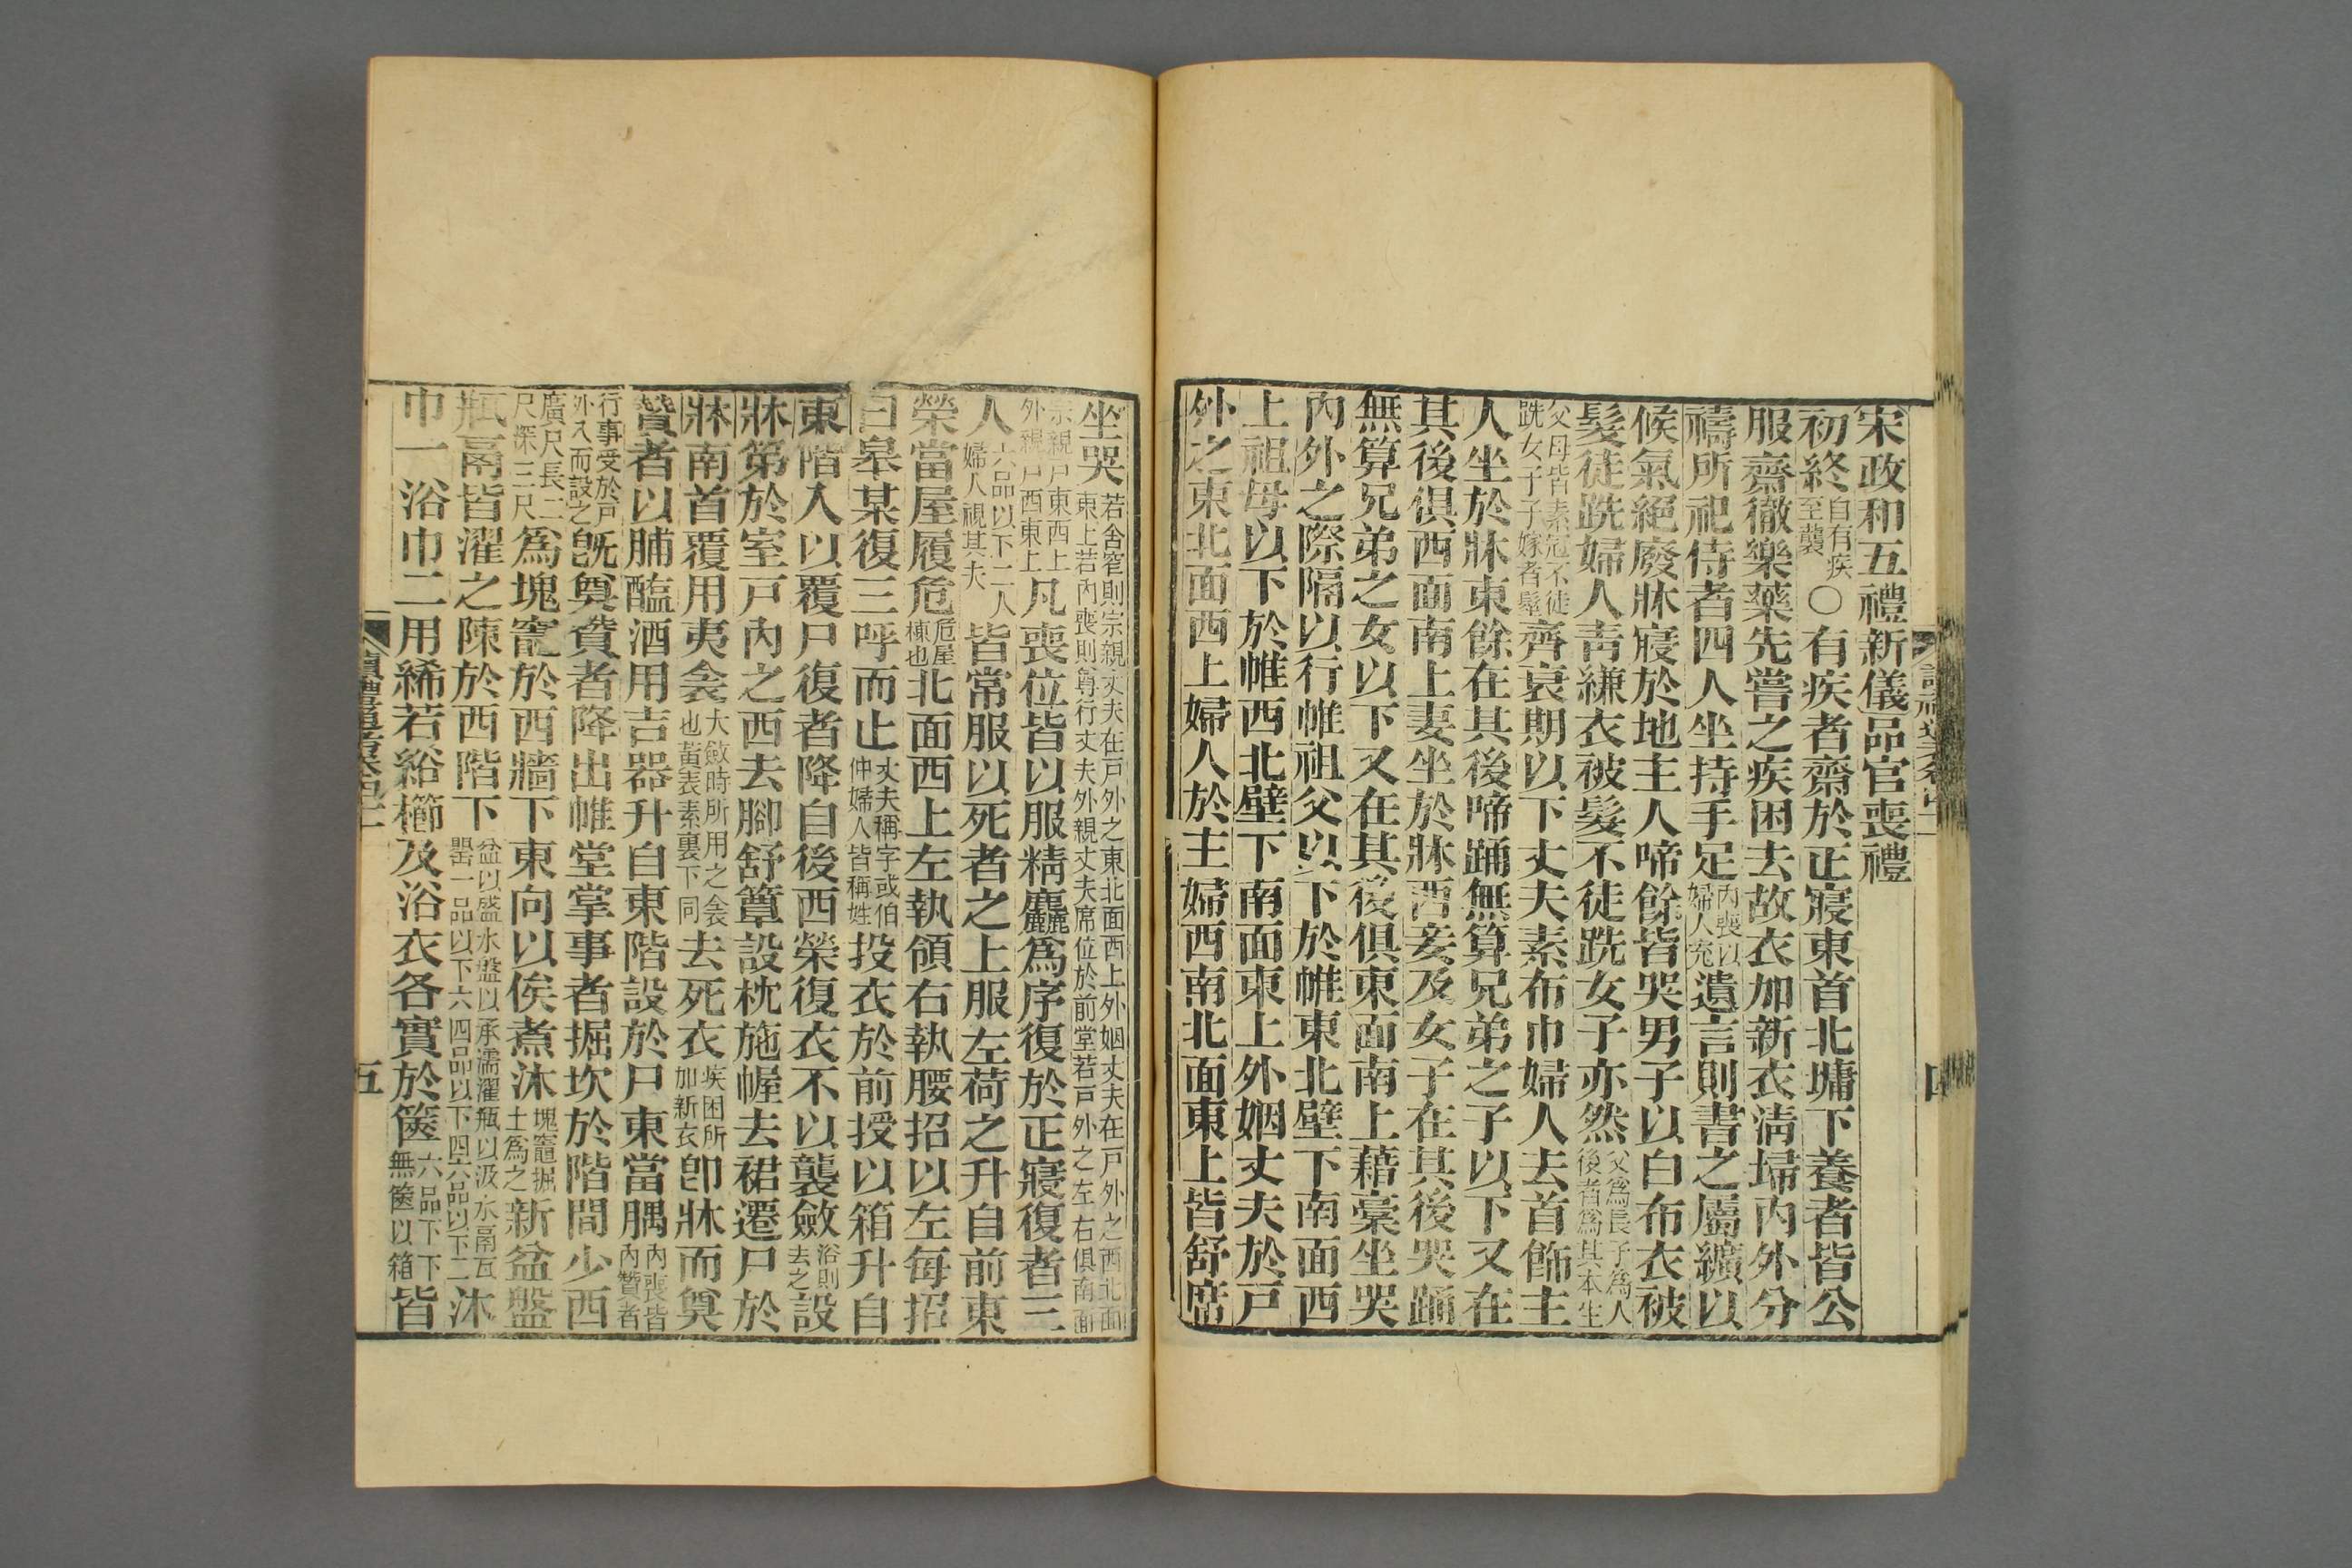 宋政和五禮新儀品官喪禮
初終自有疾至襲○有疾者齋於正寢東首北墉下養者皆公
服齋徹樂藥先嘗之疾困去故衣加新衣淸埽內外分
禱所祀侍者四人坐持手足內喪以婦人充遺言則書之屬纊以
候氣絕廢牀寢於地主人啼餘皆哭男子以白布衣被
髮徒跣婦人靑縑衣被髮不徒跣女子亦然父爲長子爲人後者爲其本生
父母皆素冠不徒跣女子子嫁者髽齊衰期以下丈夫素布巾婦人去首飾主
人坐於牀東餘在其後啼踊無算兄弟之子以下又在
其後俱西面南上妻坐於牀西妾及女子在其後哭踊
無算兄弟之女以下又在其後俱東面南上藉稾坐哭
內外之際隔以行帷祖父以下於帷東北壁下南面西
上祖母以下於帷西北壁下南面東上外姻丈夫於戸
外之東北面西上婦人於主婦西南北面東上皆舒席
坐哭若舍窄則宗親丈夫在戸外之東北面西上外姻丈夫在戸外之西北面東上若內喪則尊行丈夫外親丈夫席位於前堂若戸外之左右俱南面
宗親戸東西上外親戸西東上凡喪位皆以服精麤爲序復於正寢復者三
人六品以下二人婦人視其夫皆常服以死者之上服左荷之升自前東
榮當屋履危危屋棟也北面西上左執領右執腰招以左每招
曰皋某復三呼而止丈夫稱字或伯仲婦人皆稱姓投衣於前授以箱升自
東階入以覆尸復者降自後西榮復衣不以襲斂浴則去之設
牀第於室戸內之西去腳舒簟設枕施幄去裙遷尸於
牀南首覆用夷衾大斂時所用之衾也黃表素裏下同去死衣疾困所加新衣卽牀而奠
贊者以脯醢酒用吉器升自東階設於尸東當腢內喪皆內贊者
行事受於戸外入而設之旣奠贊者降出帷堂掌事者掘坎於階間少西
廣尺長二尺深三尺爲塊竈於西牆下東向以俟煮沐塊竈掘土爲之新盆盤
瓶鬲皆濯之陳於西階下盆以盛水盤以承濡濯瓶以汲水鬲瓦罌一品以下六四品以下四六品以下二沐
巾一浴巾二用絺若綌櫛及浴衣各實於篋六品下下無篋以箱皆
五